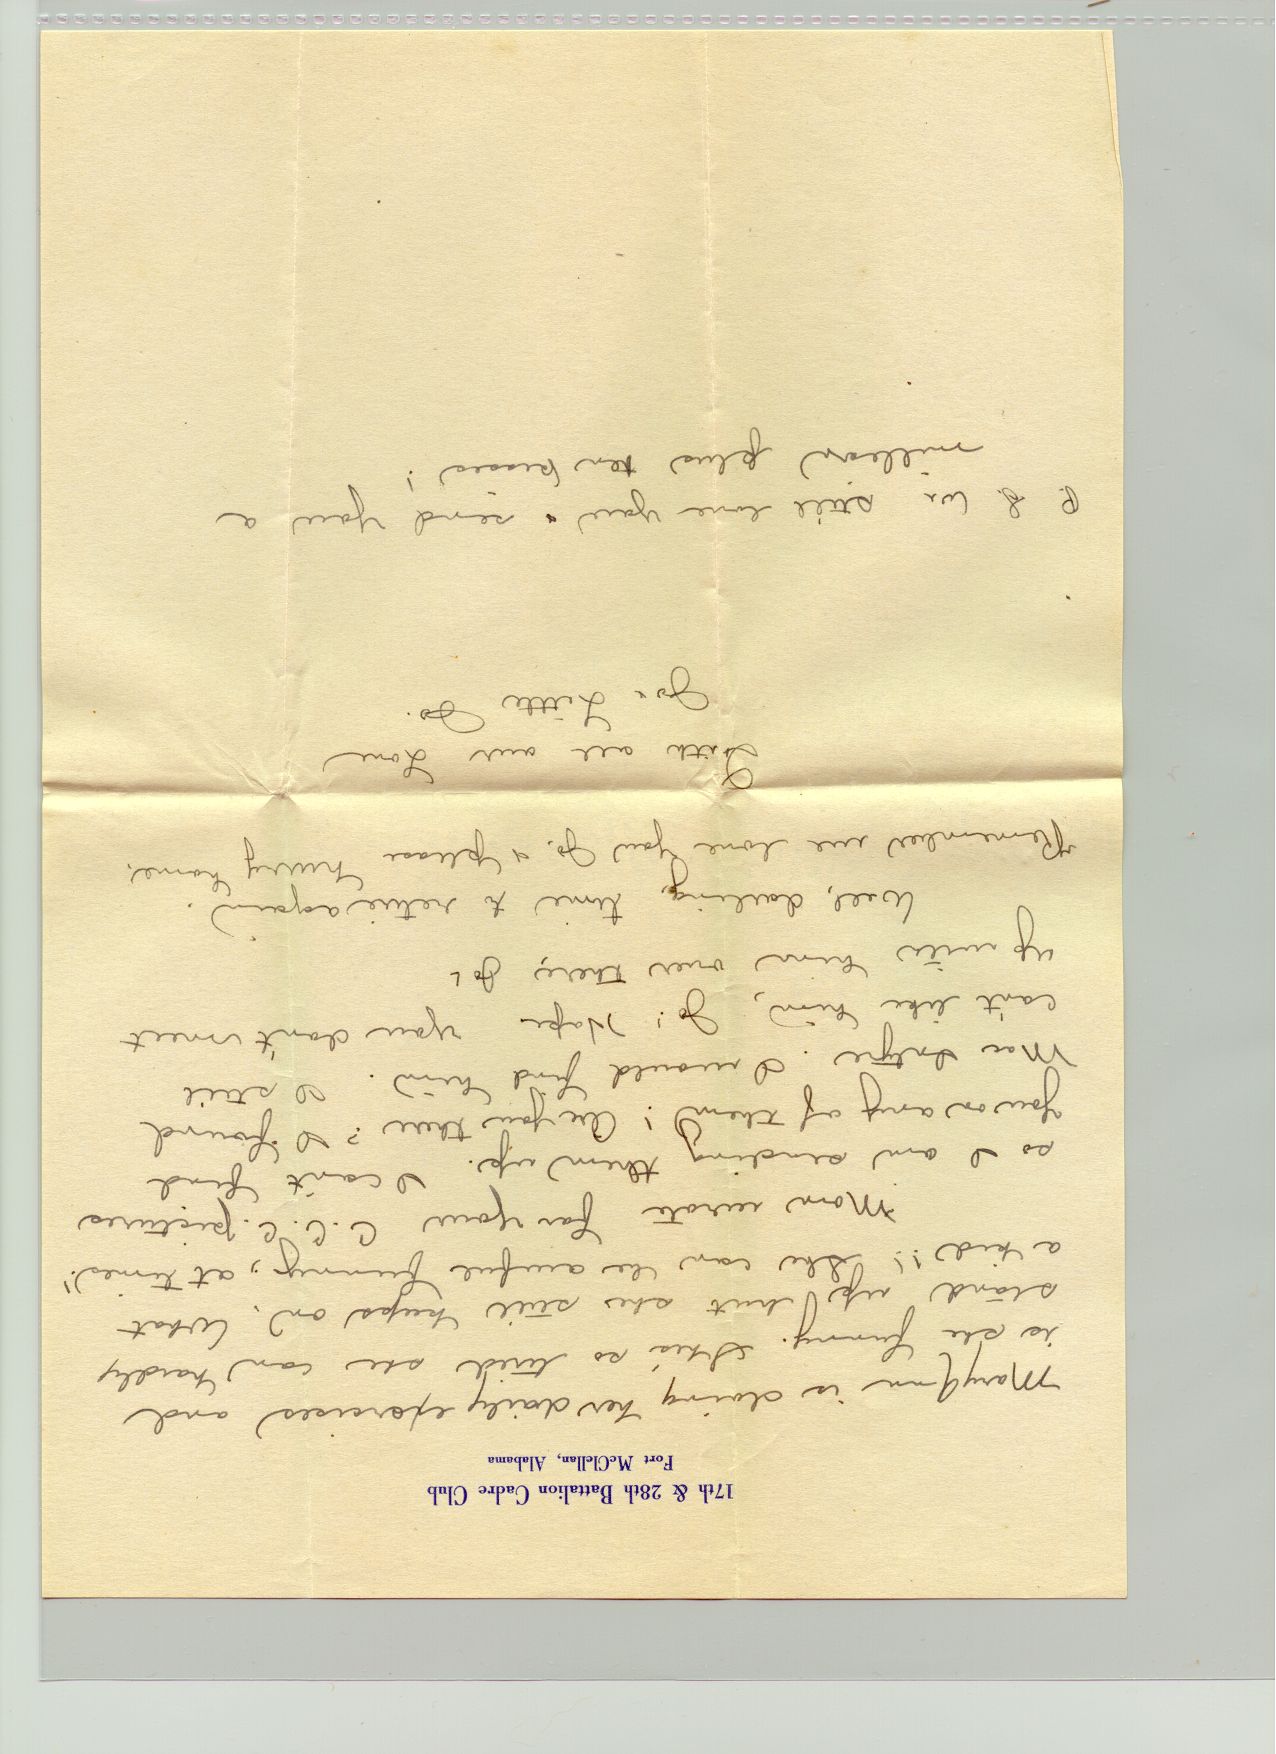 17th & 28th Battalion Cadre Club
Fort McClellan, Alabama
MaryAnn is doing her daily exercises and
is she funny. She's so tired she can hardly
stand up but she still keeps on. What
a kid!! She can be awful funny, at times!
Mom wrote for your C.C.C. pictures
so I am sending them up. I can't find
you on any of them! Are you there? I found
Mac Intyre. I would find him. I still
can't like him, Jo! Hope you don't meet
up with him over there, Jo!
Well, darling, time to retire again.
Remember we love you Jo. & please hurry home.
With all our Love
Jo & Little Jo.
P.S. We still love you & send you a
million plus ten kisses!